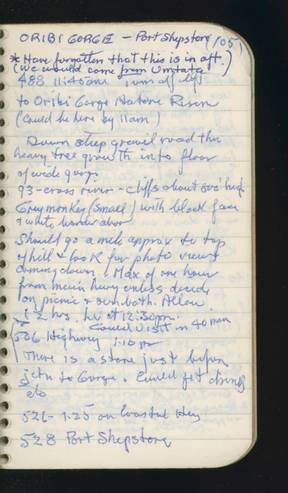 ORIBI GORGE - Port Shepstone (105)
* Have forgotten that this is in aft.
(We would come from Umtata!)
488 11:40am turn off left
to Oribi Gorge Nature Reserve
(Could be here by 11am)
Down steep gravel road thru
heavy tree growth into floor
of wide gorge.
93 - cross river - cliffs about 800' high
Grey monkey (small) with black face
& white border above
Should go a mile approx to top
of hill & look for photo views
coming down. Max of one hour
from main hwy unless decide
on picnic & sunbath. Allow
1-2 hrs. Lv at 12:30pm.
Could visit in 40 min
506 Highway 1:10 pm
There is a store just before
jctn to Gorge. Could get drinks
etc
521 - 1:25 on Coastal Hwy
528 Port Shepstone